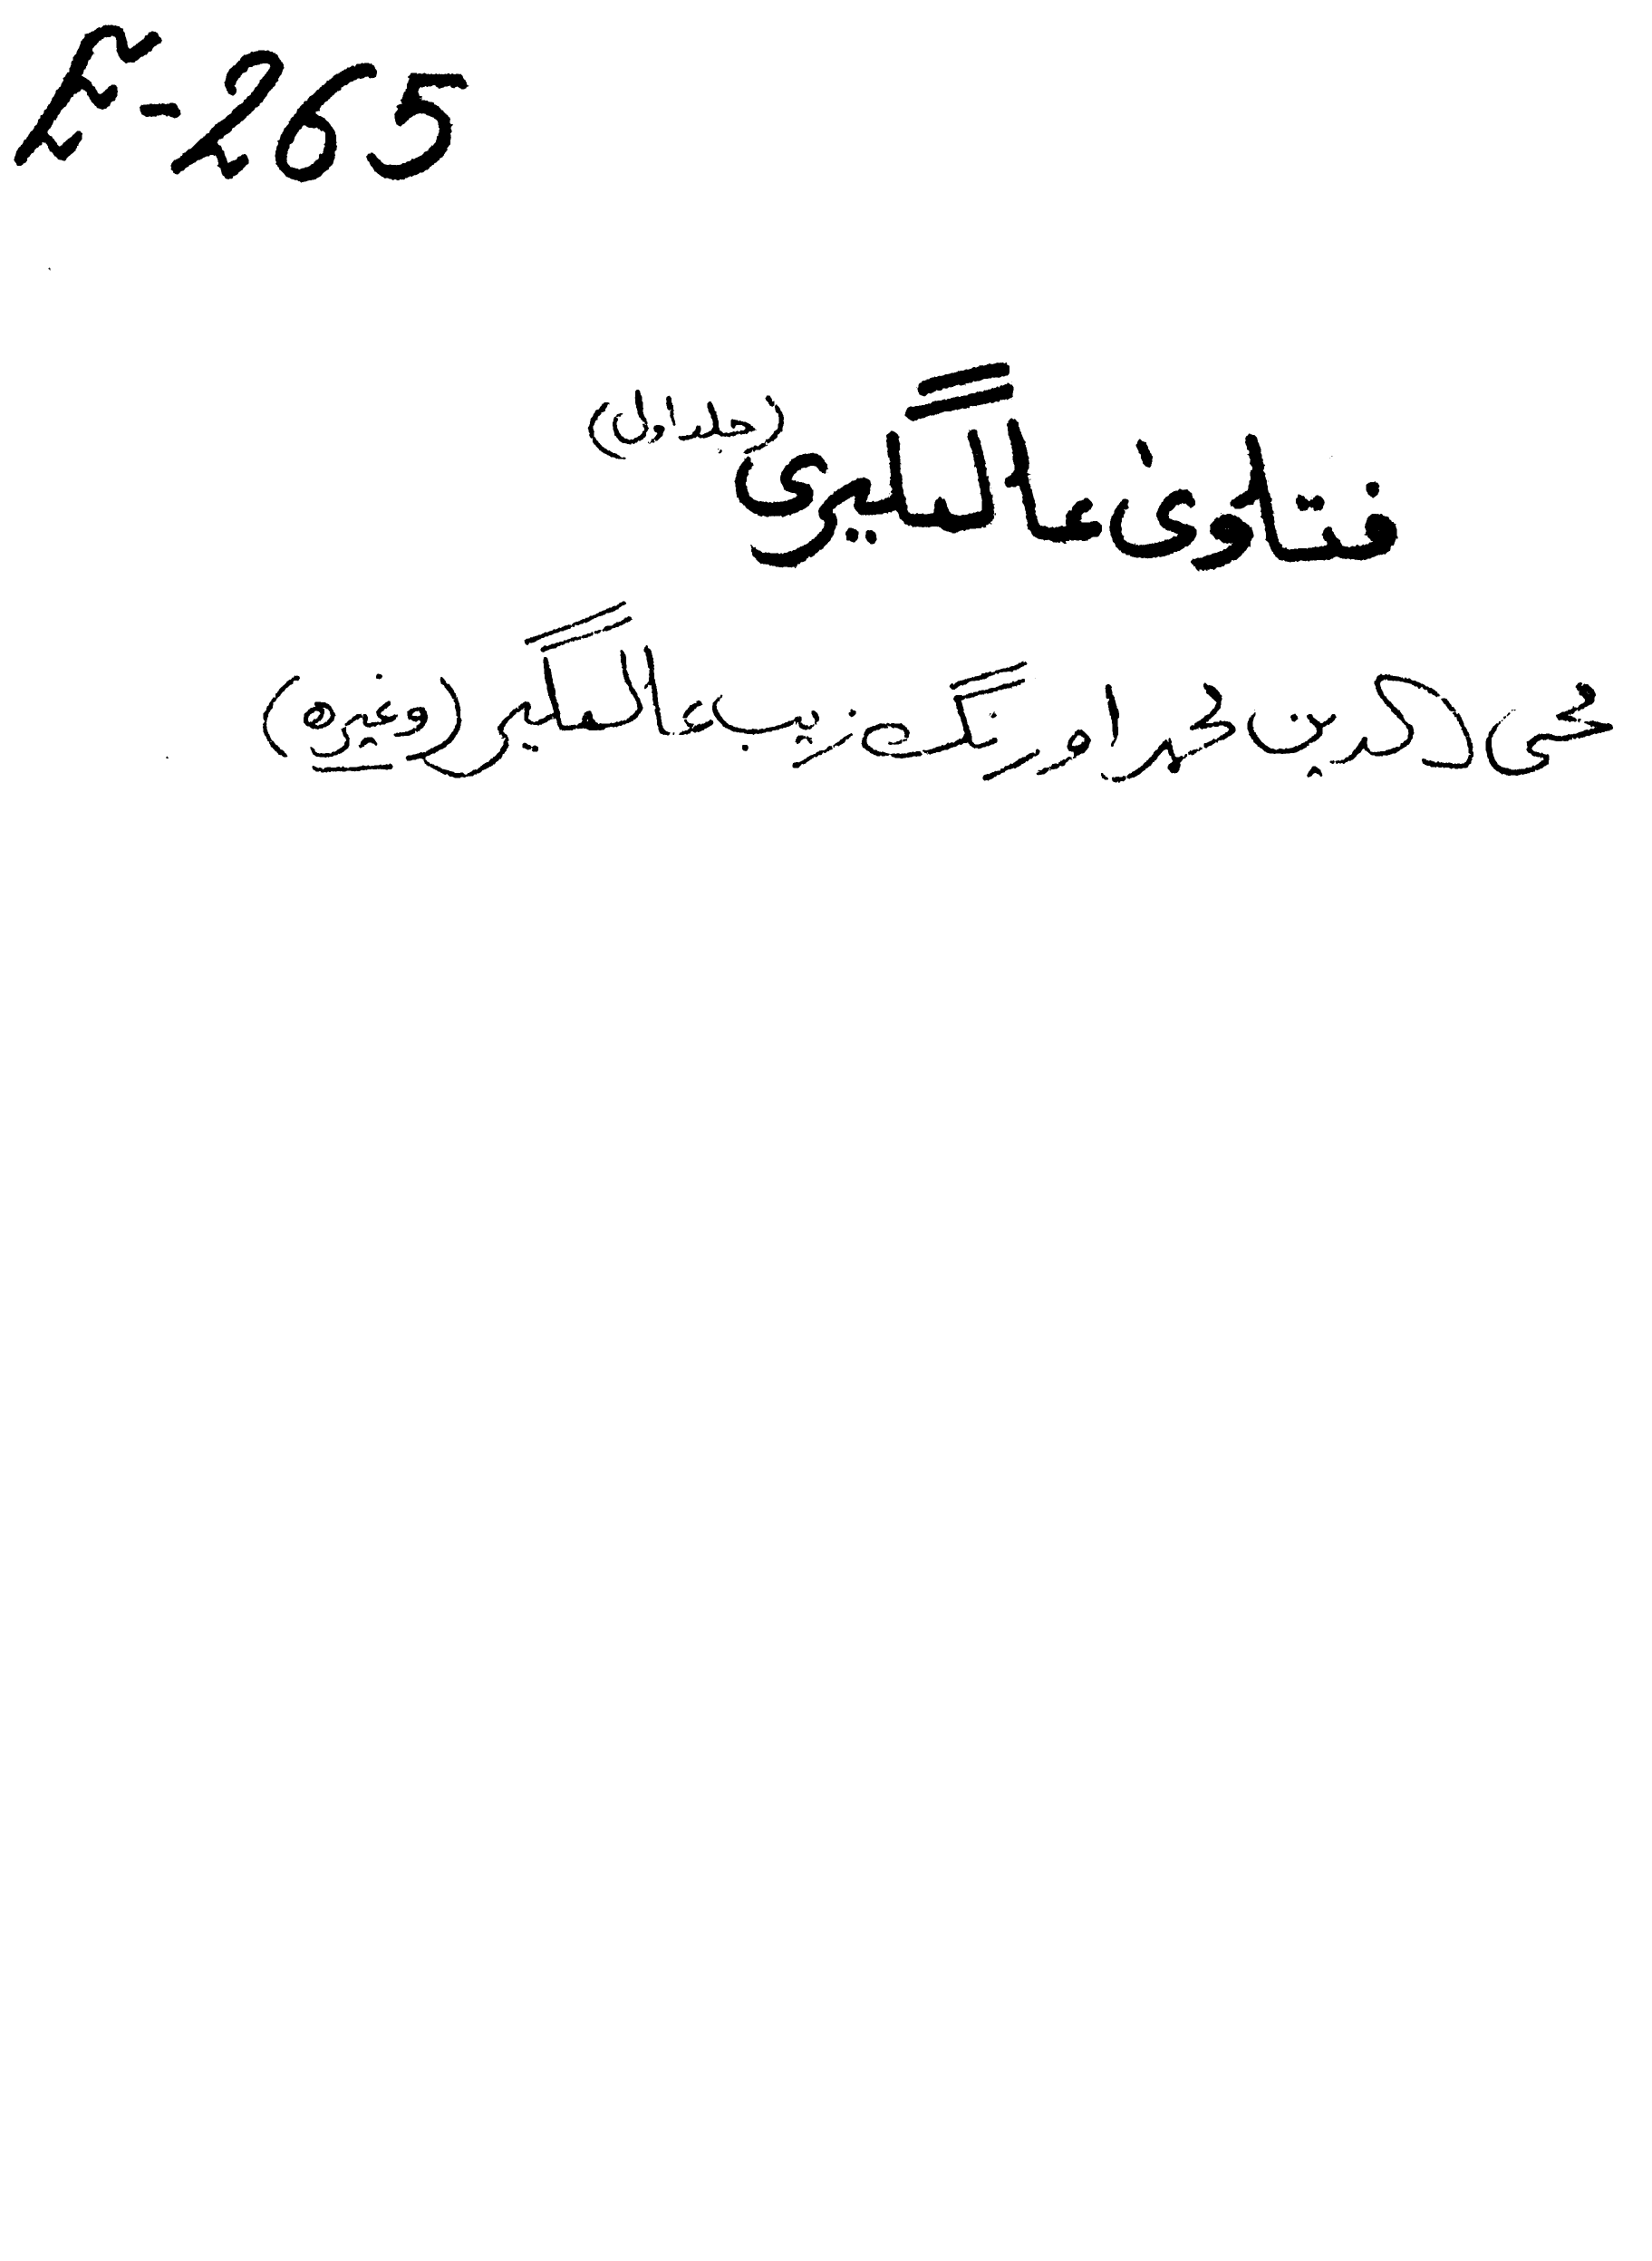 E-265
فتاویٰ عالمگیری (جلد اول)
محی الدین محمد اورنگ زیب عالمگیر (وغیرہ)